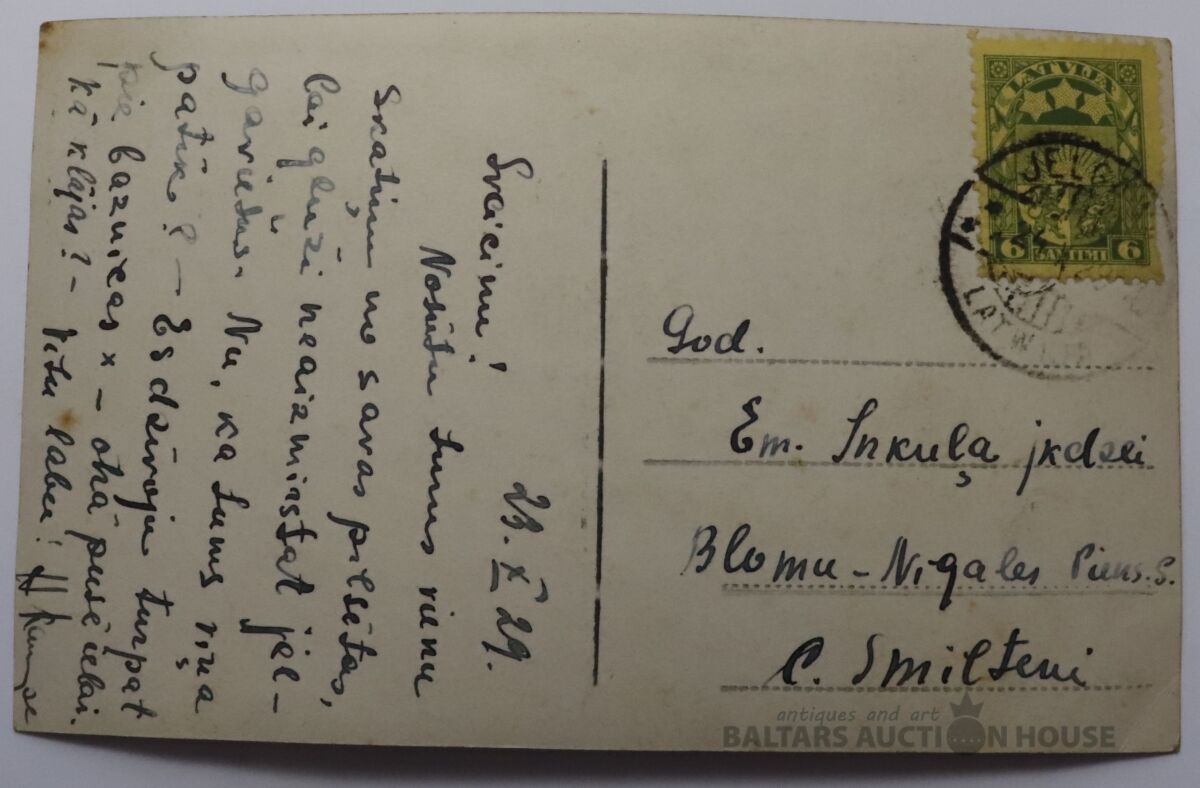 23. X 29.
Sveicinu!
Nosūtu Jums vienu
skatiņu no savas pilsētas,
lai gluži neaizmirstat jel-
gaviešus. Nu, kā Jums viņa
patīk? – Es dzīvoju turpat
pie baznīcas x – otrā pusē ielai.
Kā klājas? – Visu labu!
LATVIJA
6 SANTIMI 6
LATWIJA
God.
Em. Inkuļa jkdzei
Blomu-Nigales Piens. S.
C. Smilteni
antiques and art
BALTARS AUCTION HOUSE